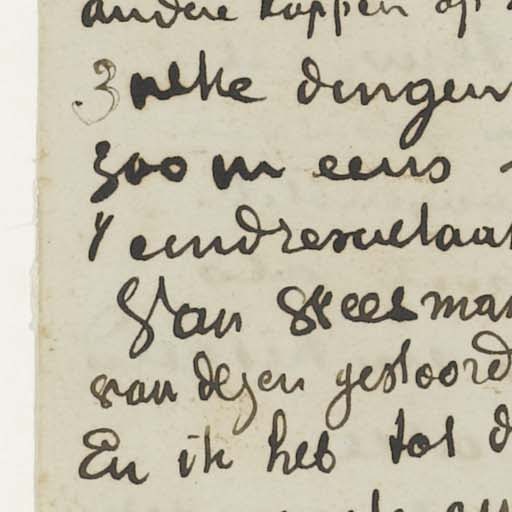 andere koppen op
Zulke dingen
zoo'n eens
't eindresultaat
Van Geestman
van dezen gestoord
En ik heb tot d